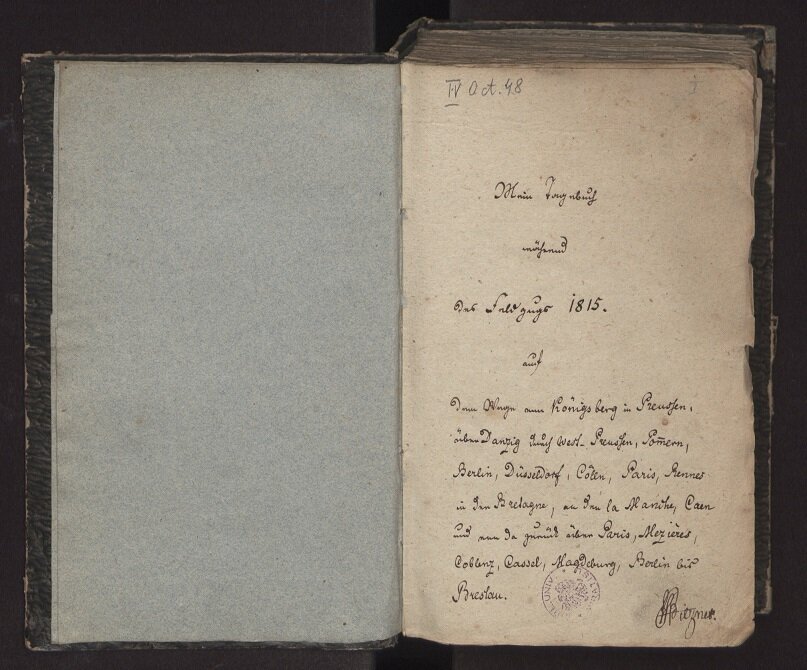 IV Oct. 48
I
Mein Tagebuch
während
des Feldzugs 1815.
auf
dem Wege von Königsberg in Preussen,
über Danzig durch West-Preussen, Pom̅ern,
Berlin, Düsseldorf, Cöln, Paris, Rennes
in der Bretagne, an den la Manche, Caen
und von da zurück über Paris, Mezières,
Coblenz, Cassel, Magdeburg, Berlin bis
Breslau.